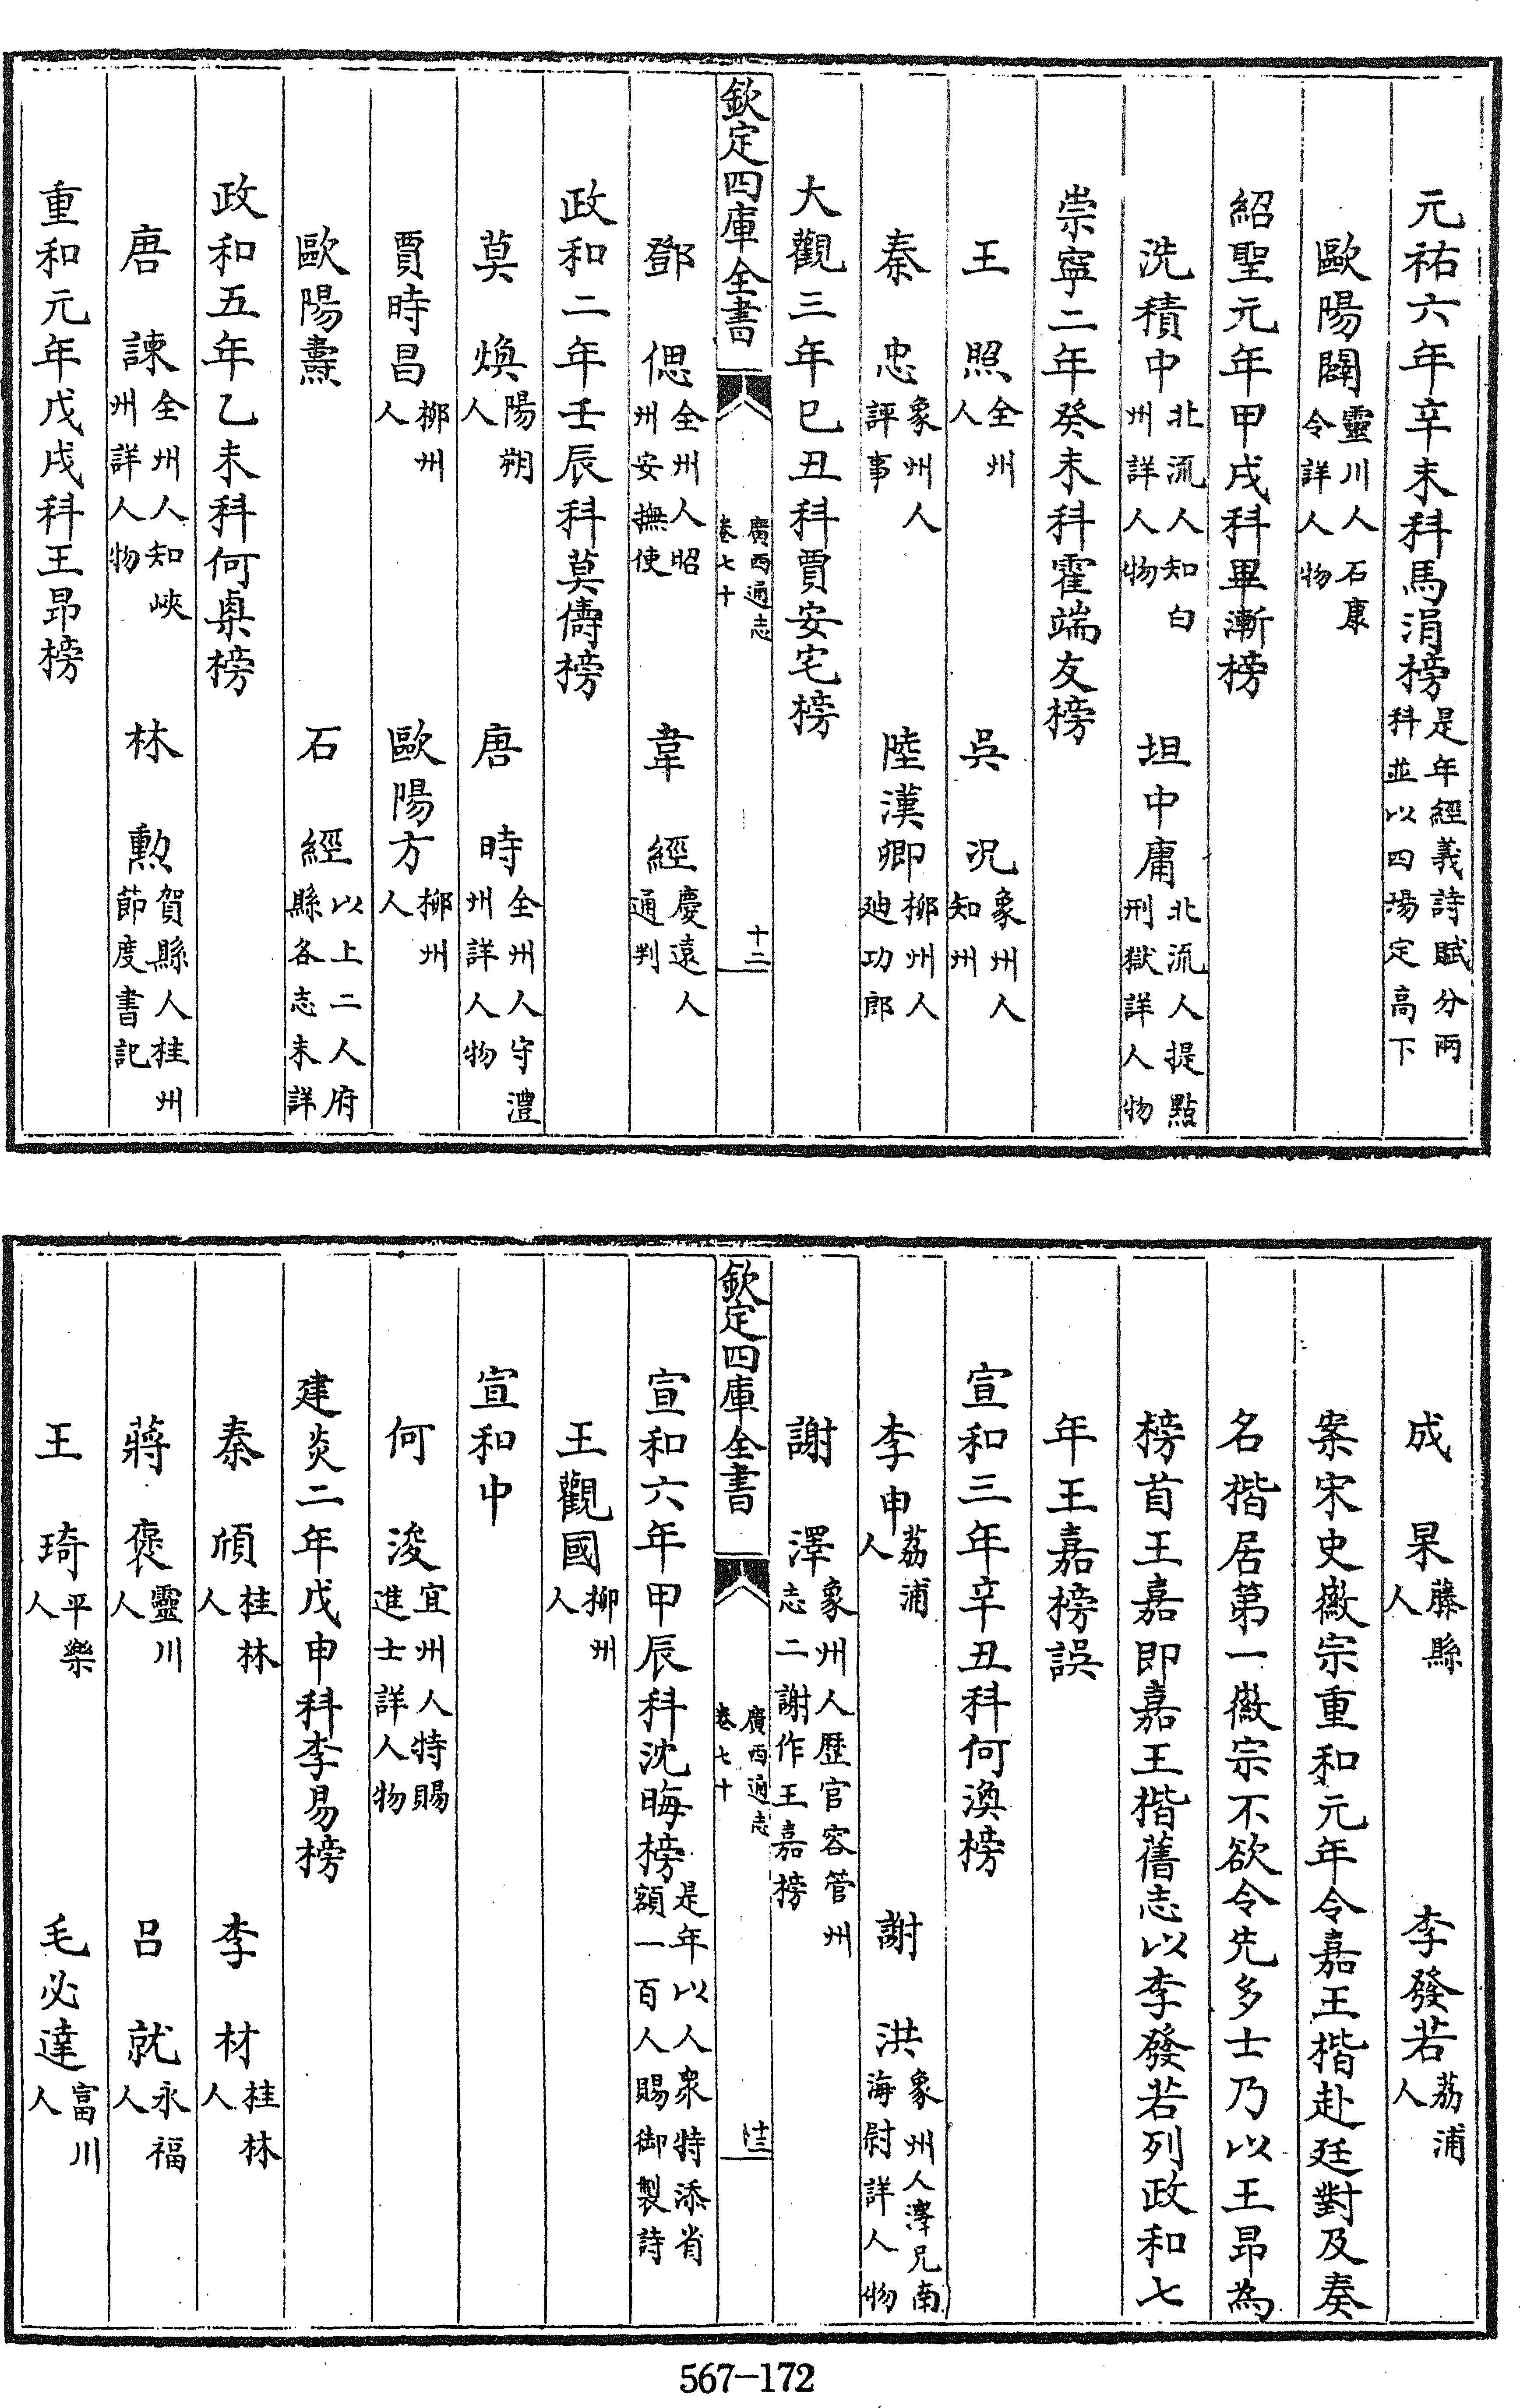 元祐六年辛未科馬涓榜是年經義詩賦分兩科並以四場定高下
歐陽闢靈川人石康令詳人物
紹聖元年甲戌科畢漸榜
洗積中北流人知白州詳人物　坦中庸北流人提點刑獄詳人物
崇寧二年癸未科霍端友榜
王照全州人　吳況象州人知州
秦忠象州人評事　陸漢卿柳州人廸功郎
大觀三年巳丑科賈安宅榜
欽定四庫全書　廣西通志卷七十　十二
鄧偲全州人昭州安撫使　韋經慶遠人通判
政和二年壬辰科莫儔榜
莫煥陽朔人　唐時全州人守澧州詳人物
賈時昌柳州人　歐陽方柳州人
歐陽燾　石經以上二人府縣各志未詳
政和五年乙未科何㮚榜
唐諫全州人知峽州詳人物　林勲賀縣人桂州節度書記
重和元年戊戌科王昂榜
成杲藤縣人　李發若荔浦人
案宋史徽宗重和元年令嘉王楷赴廷對及奏
名楷居第一徽宗不欲令先多士乃以王昂為
榜首王嘉即嘉王楷舊志以李發若列政和七
年王嘉榜誤
宣和三年辛丑科何渙榜
李申荔浦人　謝洪象州人澤兄南海尉詳人物
謝澤象州人歷官容管州志二謝作王嘉榜
欽定四庫全書　廣西通志卷七十　十三
宣和六年甲辰科沈晦榜是年以人衆特添省額一百人賜御製詩
王觀國柳州人
宣和中
何浚宜州人特賜進士詳人物
建炎二年戊申科李易榜
秦頎桂林人　李材桂林人
蔣褒靈川人　呂就永福人
王琦平樂人　毛必達富川人
567-172